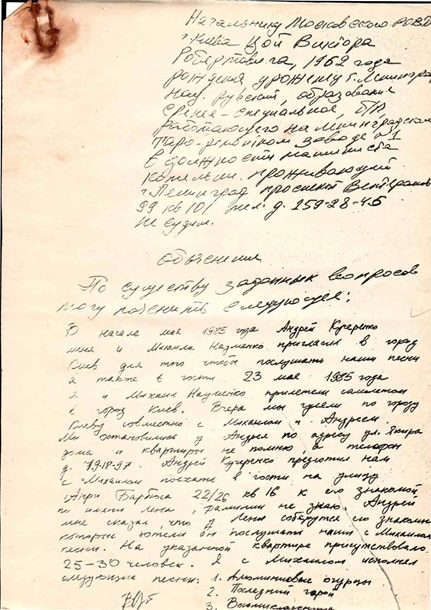 Начальнику Московского РОВД
г. Киева Цой Виктора
Робертовича, 1962 года
рождения уроженец г. Ленинград
нац. русский, образование
средне-специальное, б/п
работающего на Ленинградском
заводе №1
в должности машиниста
котельни. проживающий
г. Ленинград проспект Ветеранов
99 кв 101 тел. д. 259-28-45
не судим.
Объяснения
По существу заданных вопросов
могу пояснить следующее:
В начале мая 1985 года Андрей Кучеренко
меня и Михаила Науменко пригласил в город
Киев для того чтобы послушать наши песни
а также в гости 23 мая 1985 года
я и Михаил Науменко прилетели самолетом
в город Киев. Вчера мы гуляли по городу
Киеву совместно с Михаилом и Андреем.
Мы остановились у Андрея по адресу ул. Якира
дома и квартиры не помню, а телефон
д. 1918-97. Андрей Кучеренко предложил нам
с Михаилом поехать в гости на улицу
Анри Барбюса 22/26 кв 16 к его знакомой
по имени Лена, фамилии не знаю. Андрей
мне сказал, что у Лены соберутся его знакомые
которые хотели бы послушать наши с Михаилом
песни. На указанной квартире присутствовало
25-30 человек. Я с Михаилом исполнял
следующие песни: 1. Алюминиевые огурцы.
2. Последний герой
3. Восьмиклассница